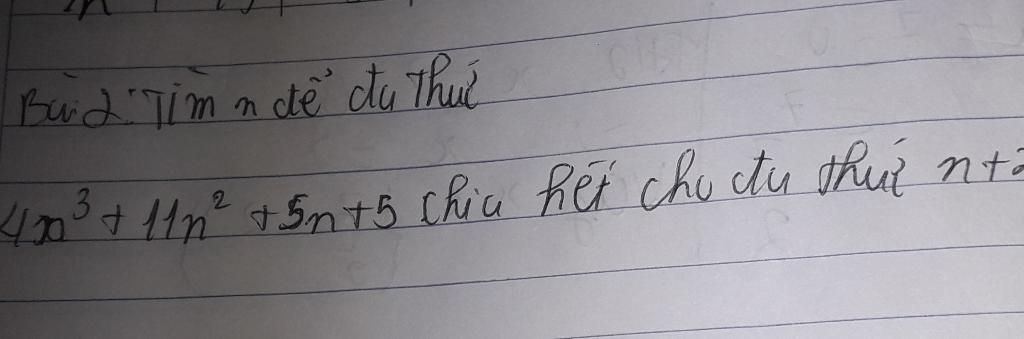 Bài 2: Tìm n để đa thức
4n³ + 11n² + 5n + 5 chia hết cho đa thức n + 2